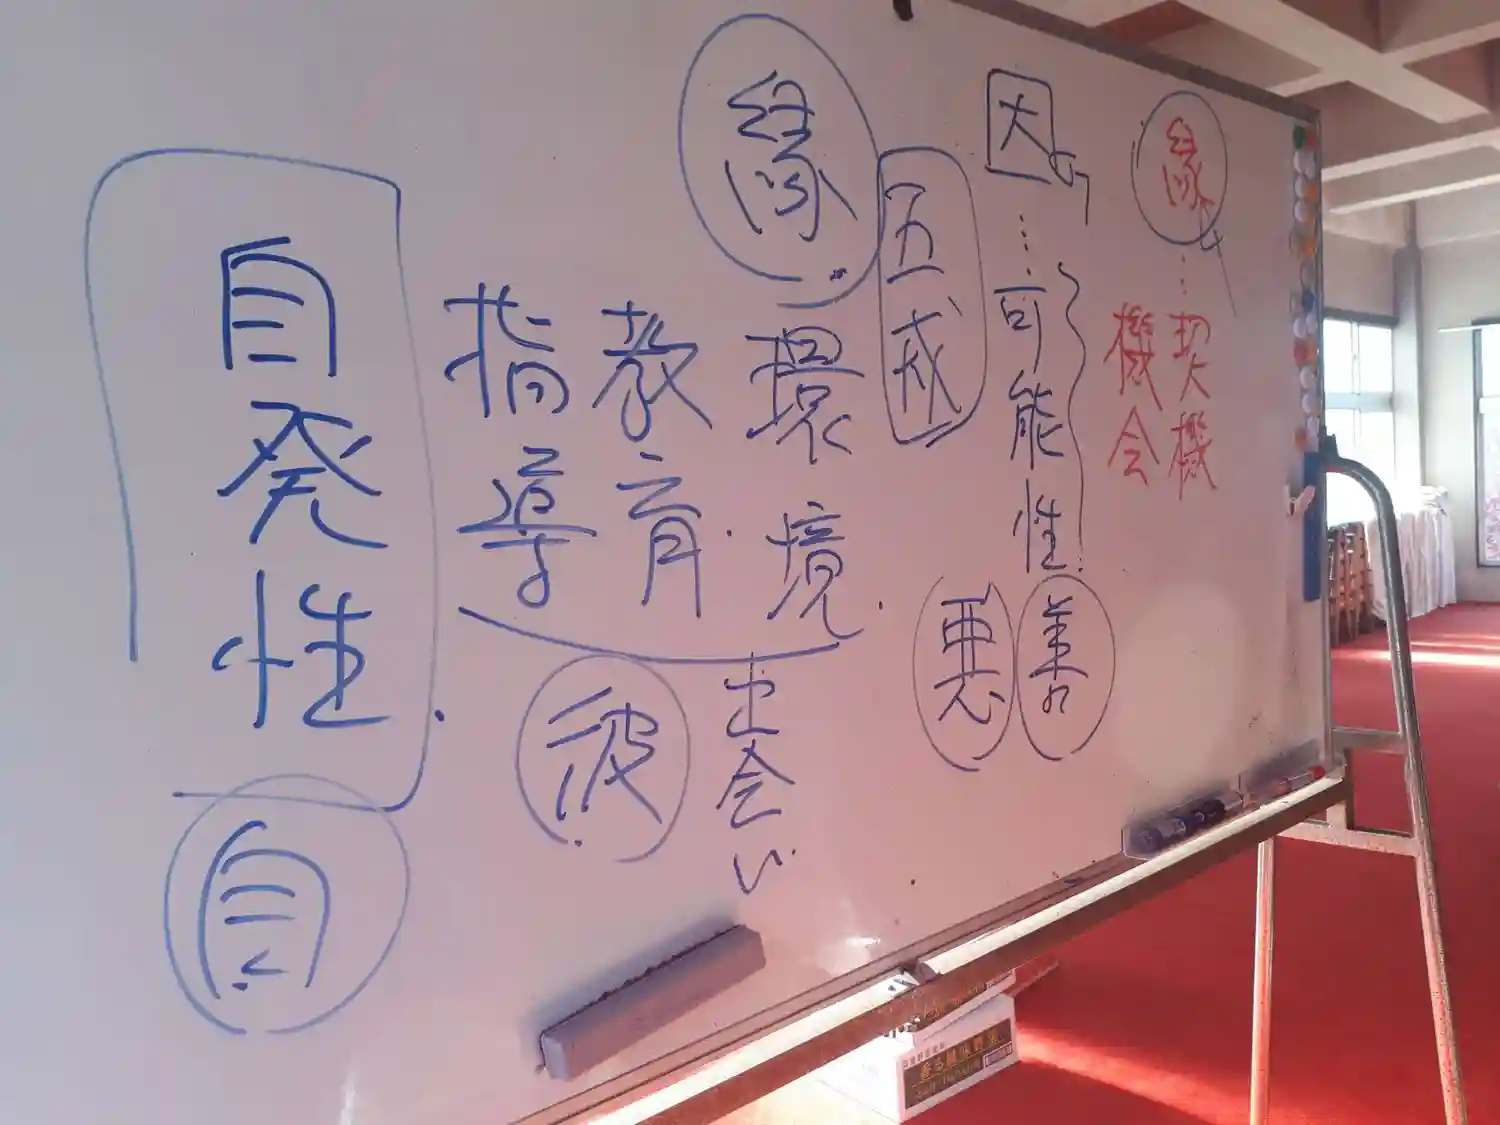 縁
契機
機会
因
…可能性
善
悪
五戒
縁
環境
教育
指導
出会い
彼
自発性
自